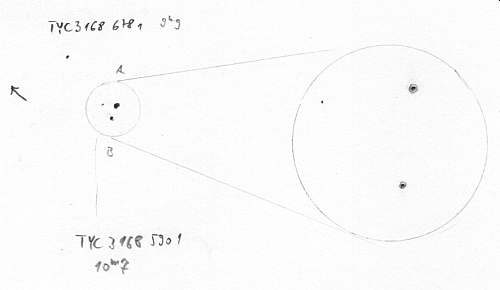 TYC 3168 678 1 9m9
A
B
TYC 3168 590 1
10m7